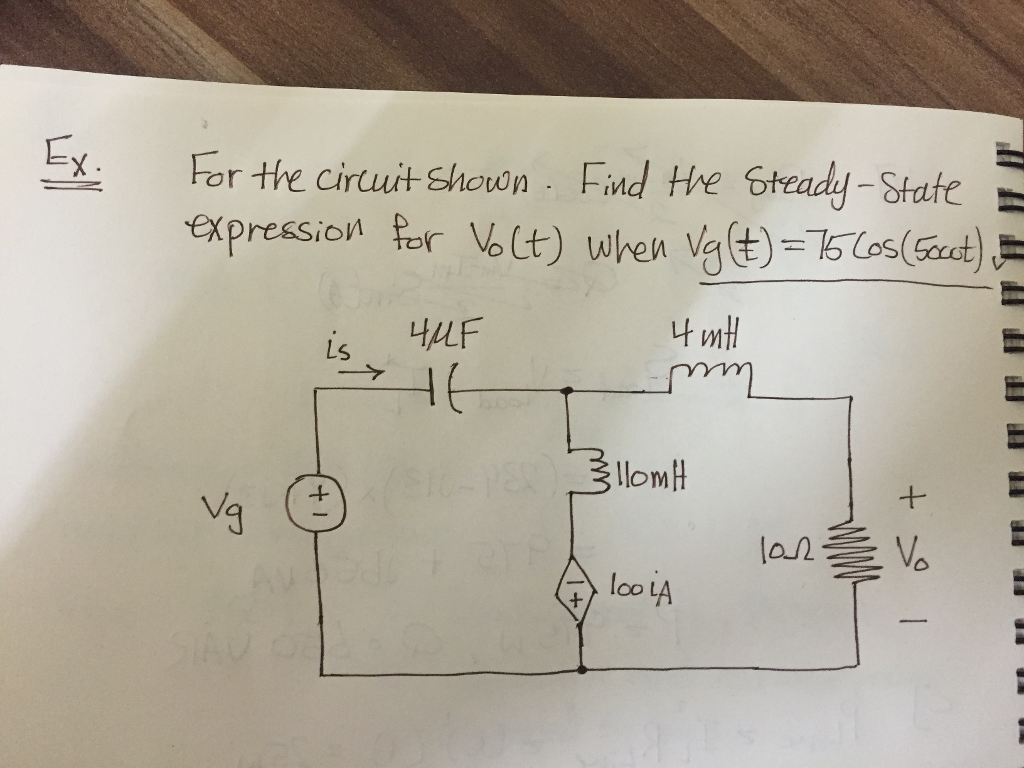 Ex. For the circuit shown. Find the Steady-State
expression for Vo(t) when Vg(t)=75 Cos(5000t)
is
4μF
4 mH
110mH
Vg
+
-
-
+
100 iA
10Ω
+
Vo
-